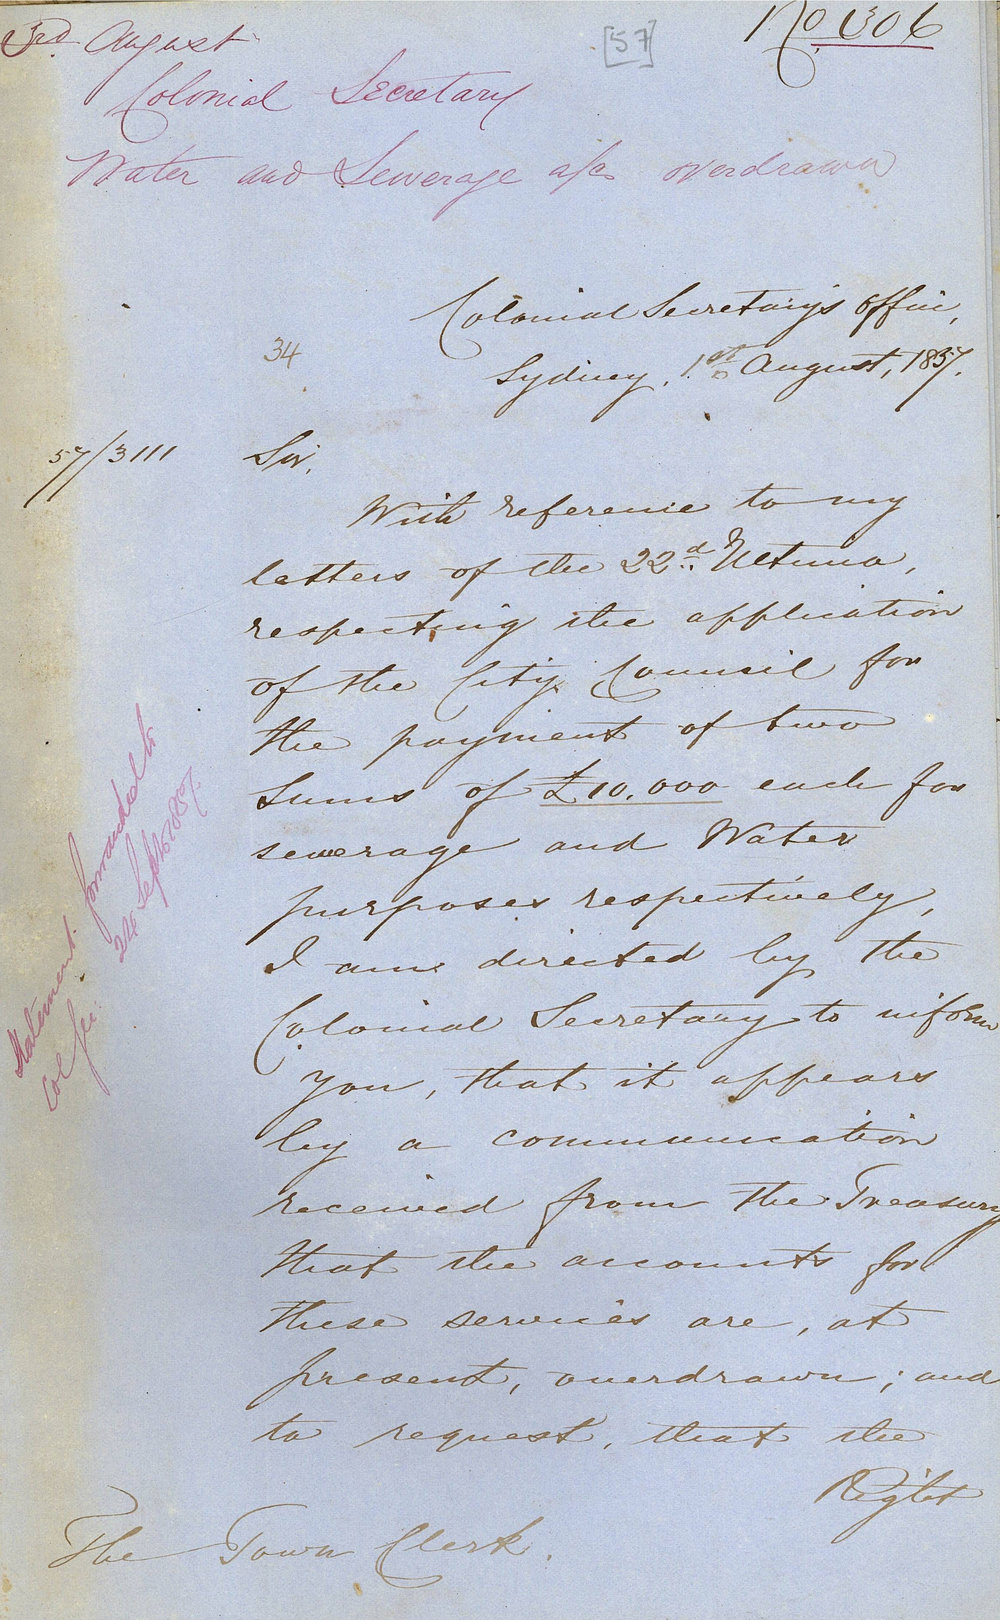 3rd August
[57]
No. 1306
Colonial Secretary
Water and Sewerage a/cs overdrawn
Colonial Secretary's Office,
34
Sydney, 1st August, 1857.
57/3111
Sir,
With reference to my
letters of the 22d. Ultimo,
respecting the application
of the City Council for
the payment of two
sums of £10,000 each for
sewerage and Water
purposes respectively,
I am directed by the
Colonial Secretary to inform
you, that it appears
by a communication
received from the Treasury
that the accounts for
these services are, at
present, overdrawn; and
to request, that the
Right
The Town Clerk.
Statement forwarded to
Col Sec:
24 Sept 1857.